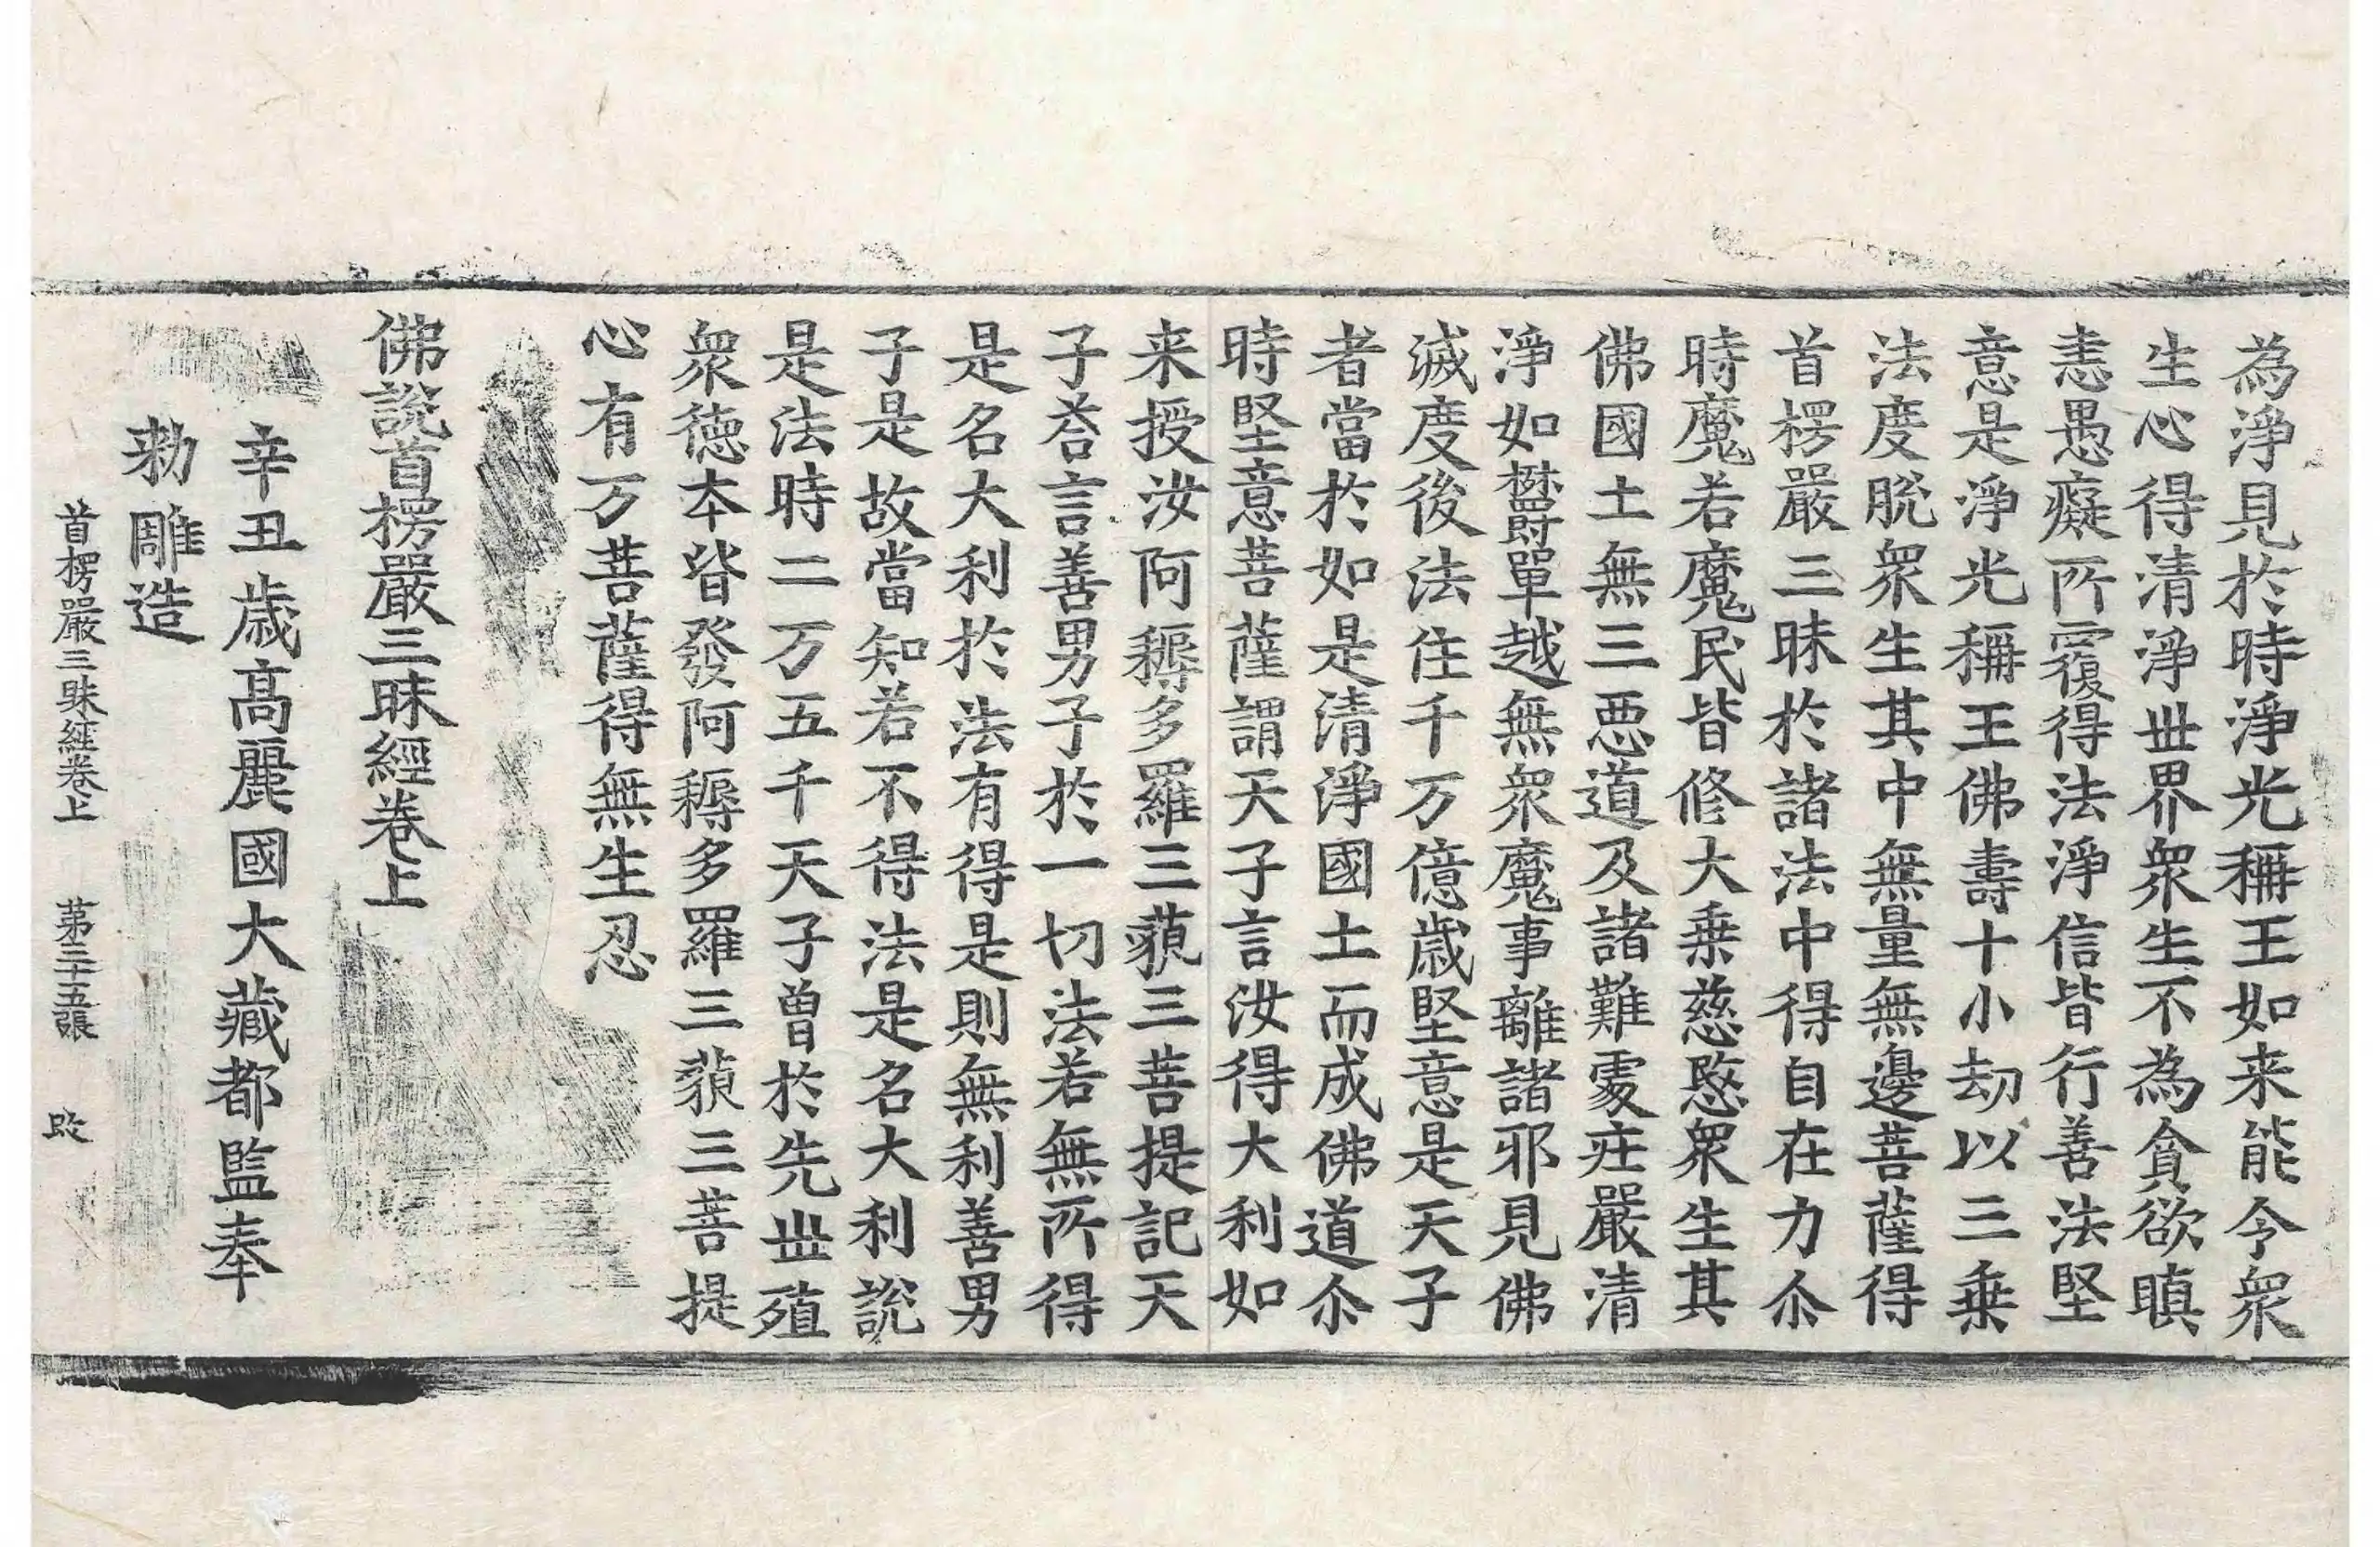 為淨見於時淨光稱王如来能令衆
生心得清淨世界衆生不為貪欲瞋
恚愚癡所覆得法淨信皆行善法堅
意是淨光稱王佛壽十小劫以三乗
法度脫衆生其中無量無邊菩薩得
首楞嚴三昧於諸法中得自在力尒
時魔若魔民皆修大乗慈愍衆生其
佛國土無三惡道及諸難處莊嚴清
淨如欝單越無衆魔事離諸邪見佛
滅度後法住千万億歲堅意是天子
者當於如是清淨國土而成佛道尒
時堅意菩薩謂天子言汝得大利如
来授汝阿耨多羅三藐三菩提記天
子荅言善男子於一切法若無所得
是名大利於法有得是則無利善男
子是故當知若不得法是名大利說
是法時二万五千天子曾於先世殖
衆德本皆發阿耨多羅三藐三菩提
心有万菩薩得無生忍
佛說首楞嚴三昧經卷上
辛丑歳髙麗國大藏都監奉
勑雕造
首楞嚴三昧經卷上　第二十五張